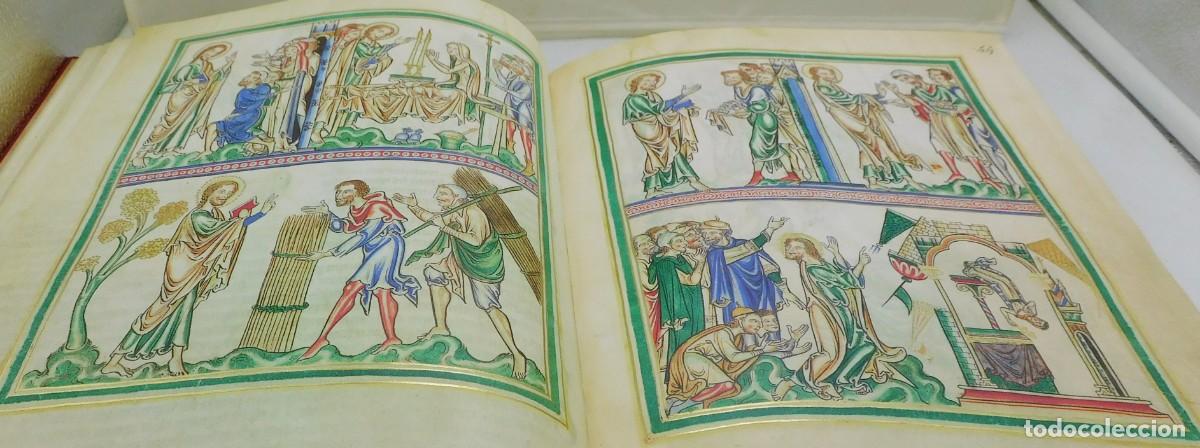 44
todocoleccion